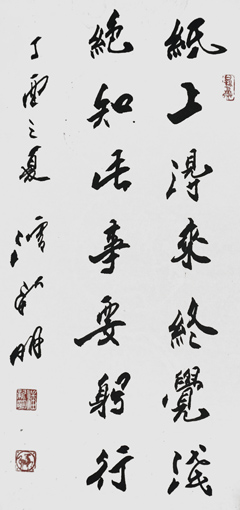 紙上得來終覺淺
絕知此事要躬行
丁酉之夏